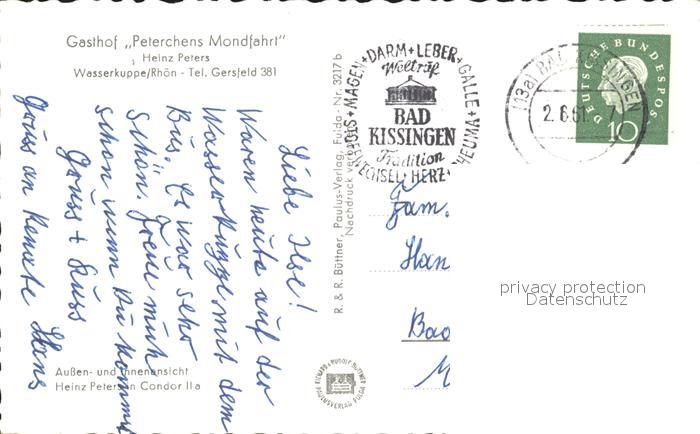 Gasthof „Peterchens Mondfahrt"
Heinz Peters
Wasserkuppe/Rhön - Tel. Gersfeld 381
Liebe Ilse!
Waren heute auf der
Wasserkuppe mit dem
Bus. Es war sehr
schön. Freue mich
schon wenn Du kommst
Gruss + Kuss
Hans
Gruss an Renate
Außen- und Innenansicht
Heinz Peters in Condor II a
R. & R. Büttner, Paulus-Verlag, Fulda - Nr. 3217 b
Nachdruck verboten
RICHARD + RUDOLF BÜTTNER
PAULUSVERLAG FULDA
STOFFWECHSEL + HERZ + RHEUMA + GALLE + LEBER + DARM + MAGEN
Weltruf
BAD
KISSINGEN
Tradition
(13a) BAD KISSINGEN
2.6.61. - 7
DEUTSCHE BUNDESPOST
10
Fam.
Han
Bad
privacy protection
Datenschutz